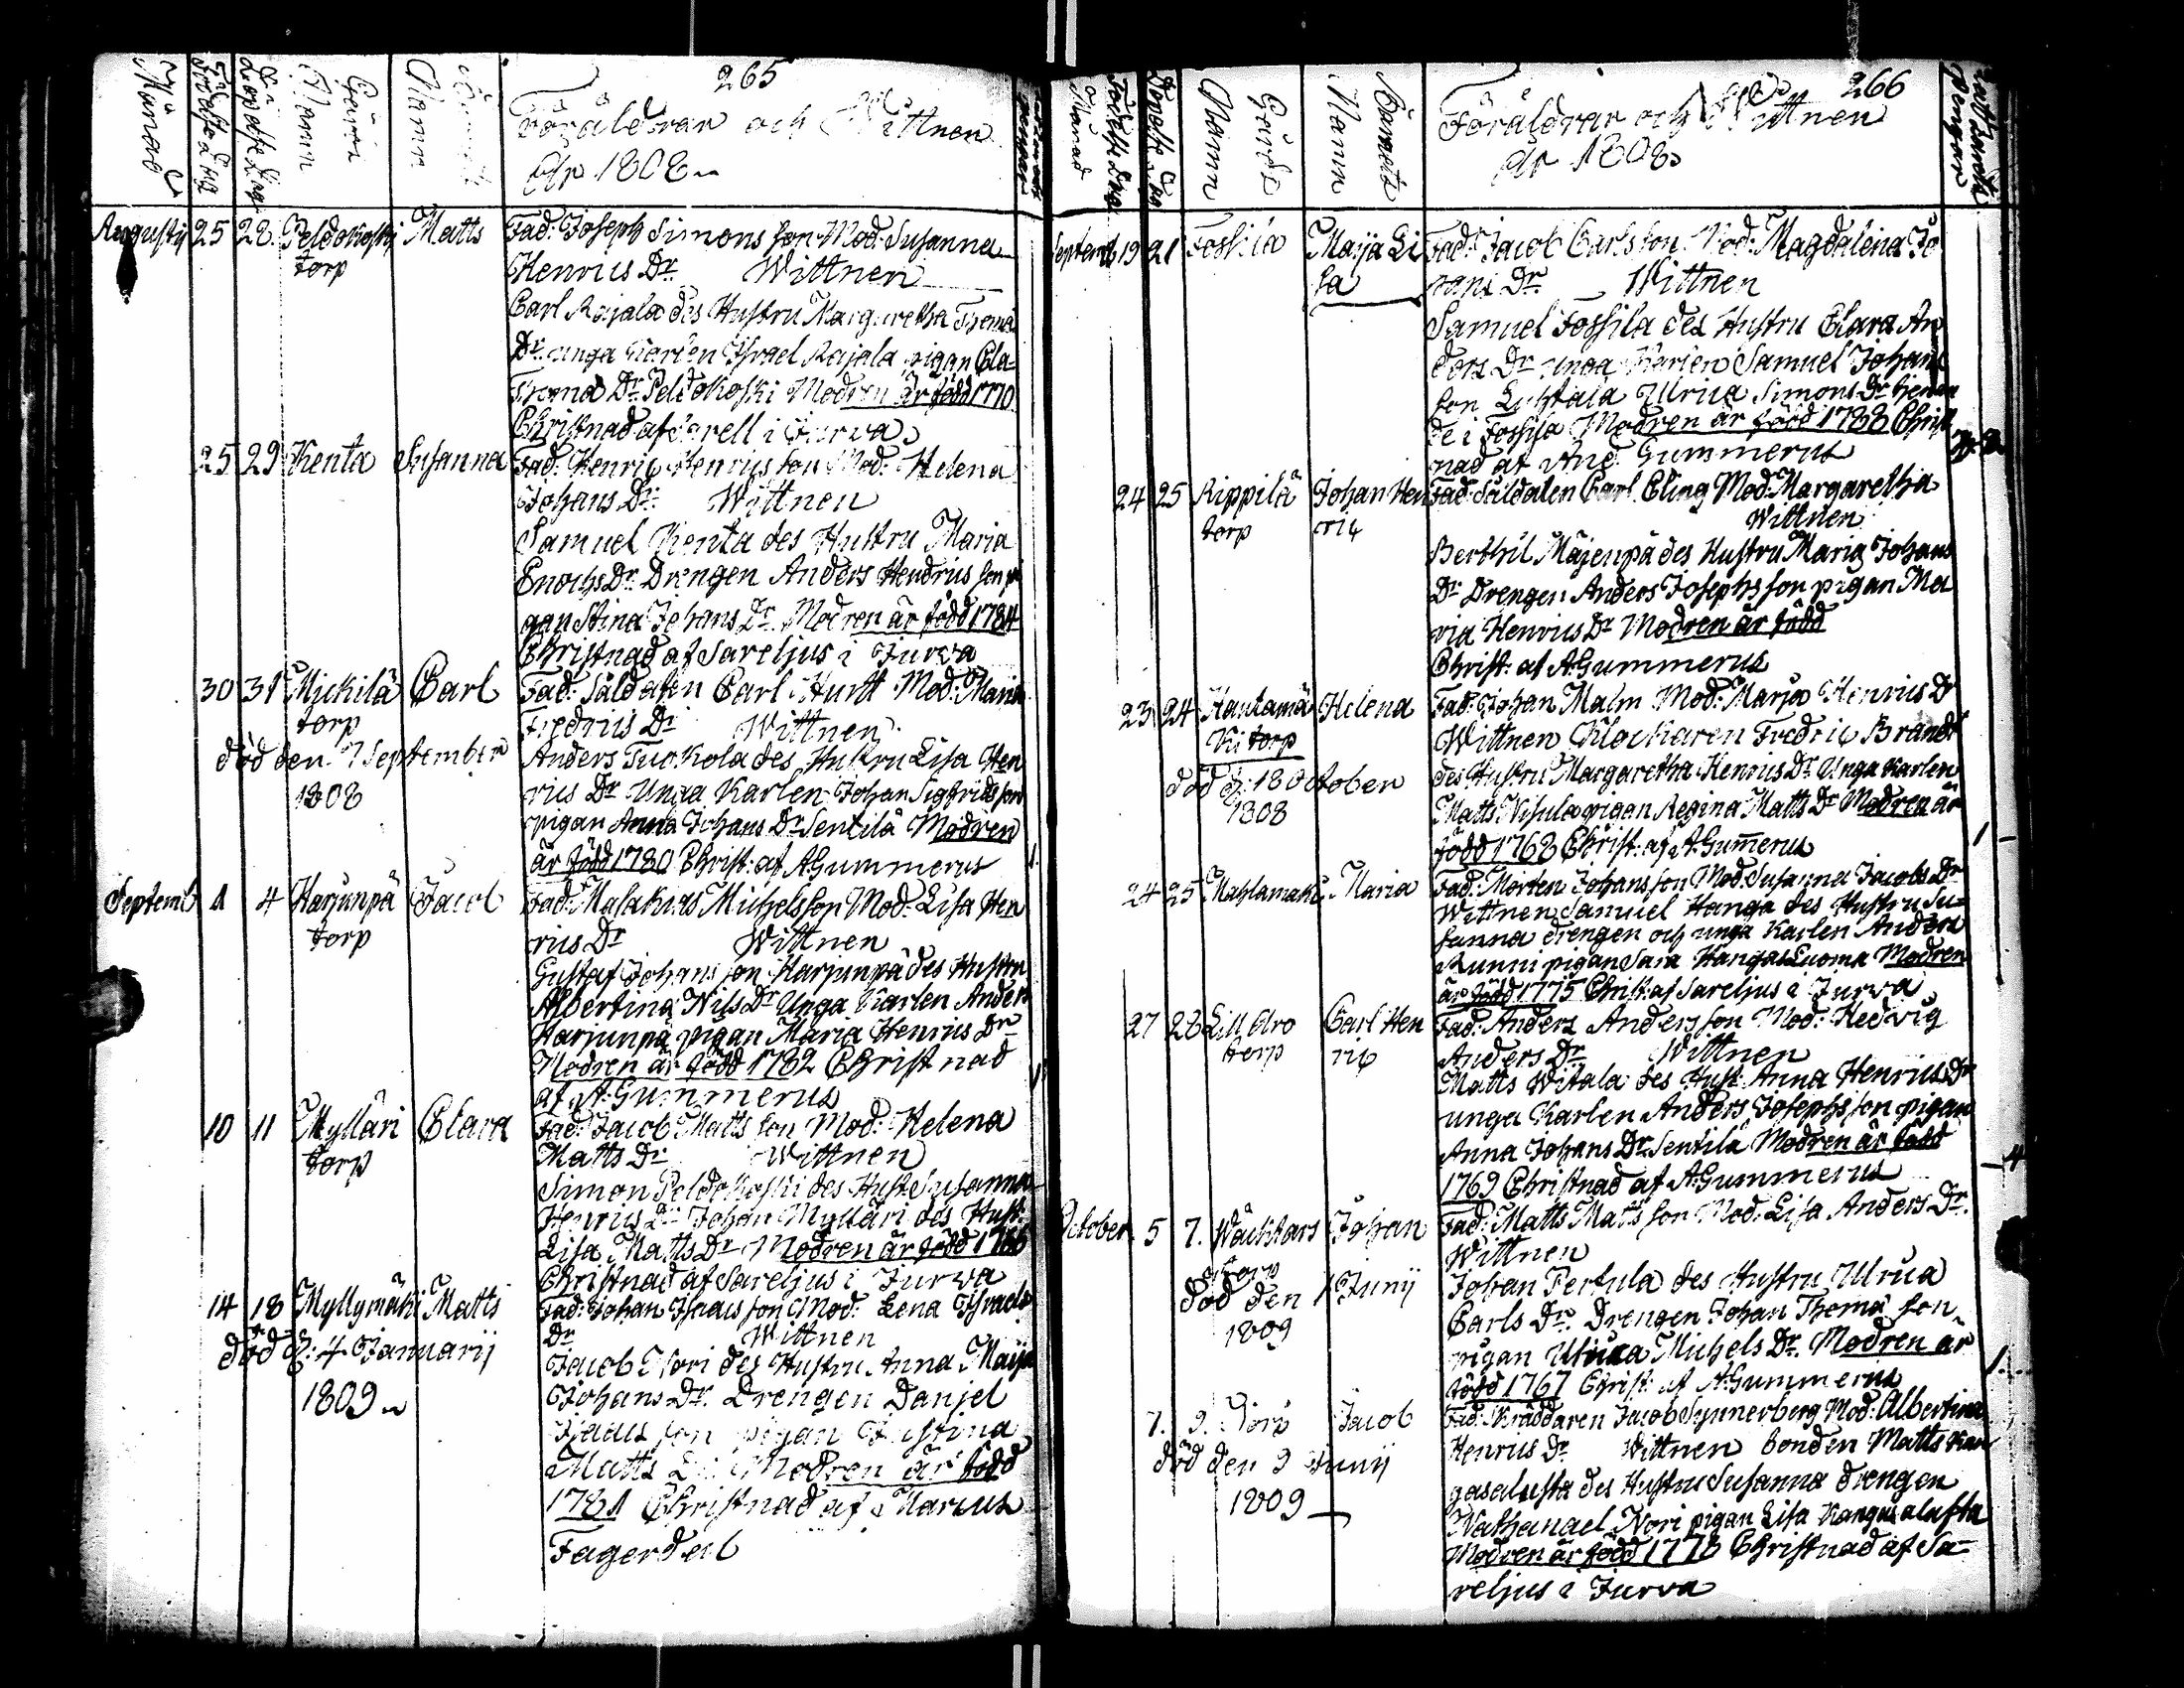 265
Månad
Födelse dag
Döpelse Dag
Gårds Namn
Barnets Namn
Föräldrar och Wittnen
År 1808
Augustij 25 28 Peldokoskj Matts Fad: Joseph Simons son Mod: Susanna
torp Henrics Dr. Wittnen
Carl Rajala des Hustru Margaretha Thoma
Dr. unga Karlen Israel Rajala pigan Cla-
Thoma Dr. Peldokoski Modren är född 1770
Christnad af Sarell i Jurva
25 29 Kenta Susanna Fad: Henric Henrics son Mod: Helena
Johans Dr: Wittnen
Samuel Kenta des Hustru Maria
Enochs Dr. Drengen Anders Hendrics son pi
gan Stina Johans Dr. Modren är född 1784
Christnad af Sareljus i Jurva
30 31 Mickilä Carl Fad: Såldaten Carl Hurtt Mod: Maria
torp Fredrics Dr Wittnen
död den 7 September Anders Tuokola des Hustru Lisa Hen
1808 rics Dr Unga Karlen Johan Sigfrids son
pigan Anna Johans Dr Sentilä Modren
är född 1780 Christ: af A Gummerus
Septemb 1 4 Harjunpä Jacob Fad: Malakias Michelsson Mod: Lisa Hen
torp rics Dr Wittnen
Gustaf Johansson Harjunpä des Hustru
Albertina Nils Dr Unga Karlen Anders
Harjunpä pigan Maria Henrics Dr
Modren är född 1782 Christnad
af A: Gummerus
10 11 Mylläri Clara Fad: Jacob Matts son Mod: Helena
torp Matts Dr Wittnen
Simon Peldokoski des Hust: Susanna
Henrics Dr Johan Mylläri des Hust:
Lisa Matts Dr Modren är född 1766
Christnad af Sareljus i Jurva
14 18 Myllymäki Matts Fad: Johan Isacs son Mod: Lena Israels
död d: 4 Januarij Dr Wittnen
Jacob Nori des Hustru Anna Maija
1809 Johans Dr. Drengen Danjel
Isacs son pigan Justina
Matts Dr. Modren är född
1781 Christnad af Marcus
Fagerdal
266
Månad
Födelse Dag
Döpelse Dag
Gårds Namn
Barnets Namn
Föräldrar och Wittnen
år 1808
Septemb 19 21 Fossila Maija Li Fad: Jacob Carlsson Mod: Magdalena Jo
sa hans Dr. Wittnen
Samuel Fossila des Hustru Clara An
ders Dr unga Karlen Samuel Johans
son Luhtala Ulrica Simons Dr hemma
de i Fossila Modren är född 1788 Christ
nad af And: Gummerus
24 25 Rippilä Johan Hen Fad: Såldaten Carl Eling Mod: Margaretha
torp ric Wittnen
Berthil Mäjenpä des Hustru Maria Johans
Dr Drengen Anders Josephs son pigan Ma
ria Henrics Dr Modren är född
Christ: af A Gummerus
23 24 Hautamä Helena Fad: Johan Malm Mod: Marja Henrics Dr
ki torp Wittnen Klockaren Fredric Brandt
död d: 18 October des Hustru Margaretha Henrics Dr Unga Karlen
1808 Matts Nisula pigan Regina Matts Dr Modren är
född 1768 Christ: af A Gummerus
24 25 Mahlamäki Maria Fad: Morten Johans son Mod: Susanna Jacobs Dr
Wittnen Samuel Hanga des Hustru Su-
sanna drengen och unga Karlen Anders
Kunni pigan Sara Hangas Luoma Modren
är född 1775 Christ: af Sareljus i Jurva
27 28 Lill Aro Carl Hen Fad: Anders Andersson Mod: Hedvig
torp ric Anders Dr Wittnen
Matts Witala des Hust: Anna Henrics Dr
unga Karlen Anders Josephs son pigan
Anna Johans Dr Sentilä Modren är född
1769 Christnad af A Gummerus
October 5 7. Johan Fad: Matts Matts son Mod: Lisa Anders Dr.
Wittnen
död den 1 Junij Johan Pertula des Hustru Ulrica
1809 Carls Dr. Drengen Johan Thoma son
pigan Ulrica Michels Dr. Modren är
född 1767 Christ: af A: Gummerus
7. 9. Jacob Fad: Skräddaren Jacob Synnerberg Mod: Albertina
död den 9 Junij Henrics Dr Wittnen bonden Matts Kan
1809 gasalusta des Hustru Susanna drengen
Nathanael Nori pigan Lisa Kangasalusta
Modren är född 1778 Christnad af Sa-
reljus i Jurva